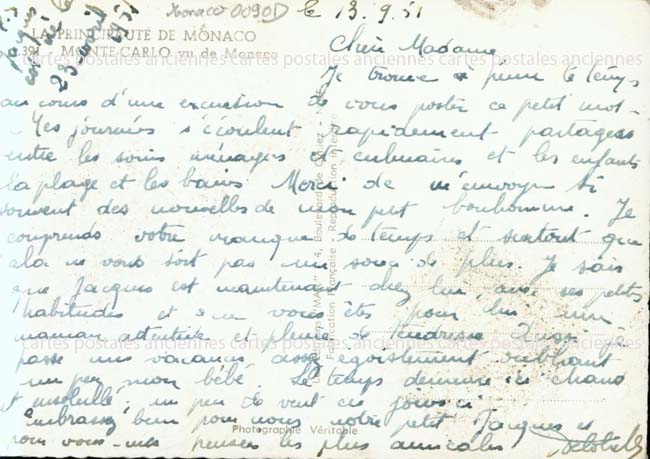 Monaco 0090D
le 13.9.51
LA PRINCIPAUTÉ DE MONACO
391 - MONTE-CARLO vu de Monaco
Jacques
né le
23 avril
1951
Chère Madame,
Je trouve à peine le temps
au cours d'une excursion de vous poster ce petit mot
- Mes journées s'écoulent rapidement partagées
entre les soins ménagers et culinaires et les enfants
la plage et les bains Merci de m'envoyer si
souvent des nouvelles de mon ptit bonhomme. Je
comprends votre manque de temps et surtout que
cela ne vous soit pas un souci de plus. Je sais
que Jacques est maintenant chez lui, avec ses petites
habitudes et que vous êtes pour lui une
maman attentive et pleine de tendresse
passe mes vacances assez égoistement oubliant
un peu mon bébé. Le temps demeure ici chaud
et ensoleillé, un peu de vent ces jours ci.
Embrassez bien pour nous notre petit Jacques et
pour vous mes pensées les plus amicales
Photographie Véritable
Fabrication Française - Reproduction Interdite
cartes postales anciennes cartes postales anciennes cartes postales anciennes